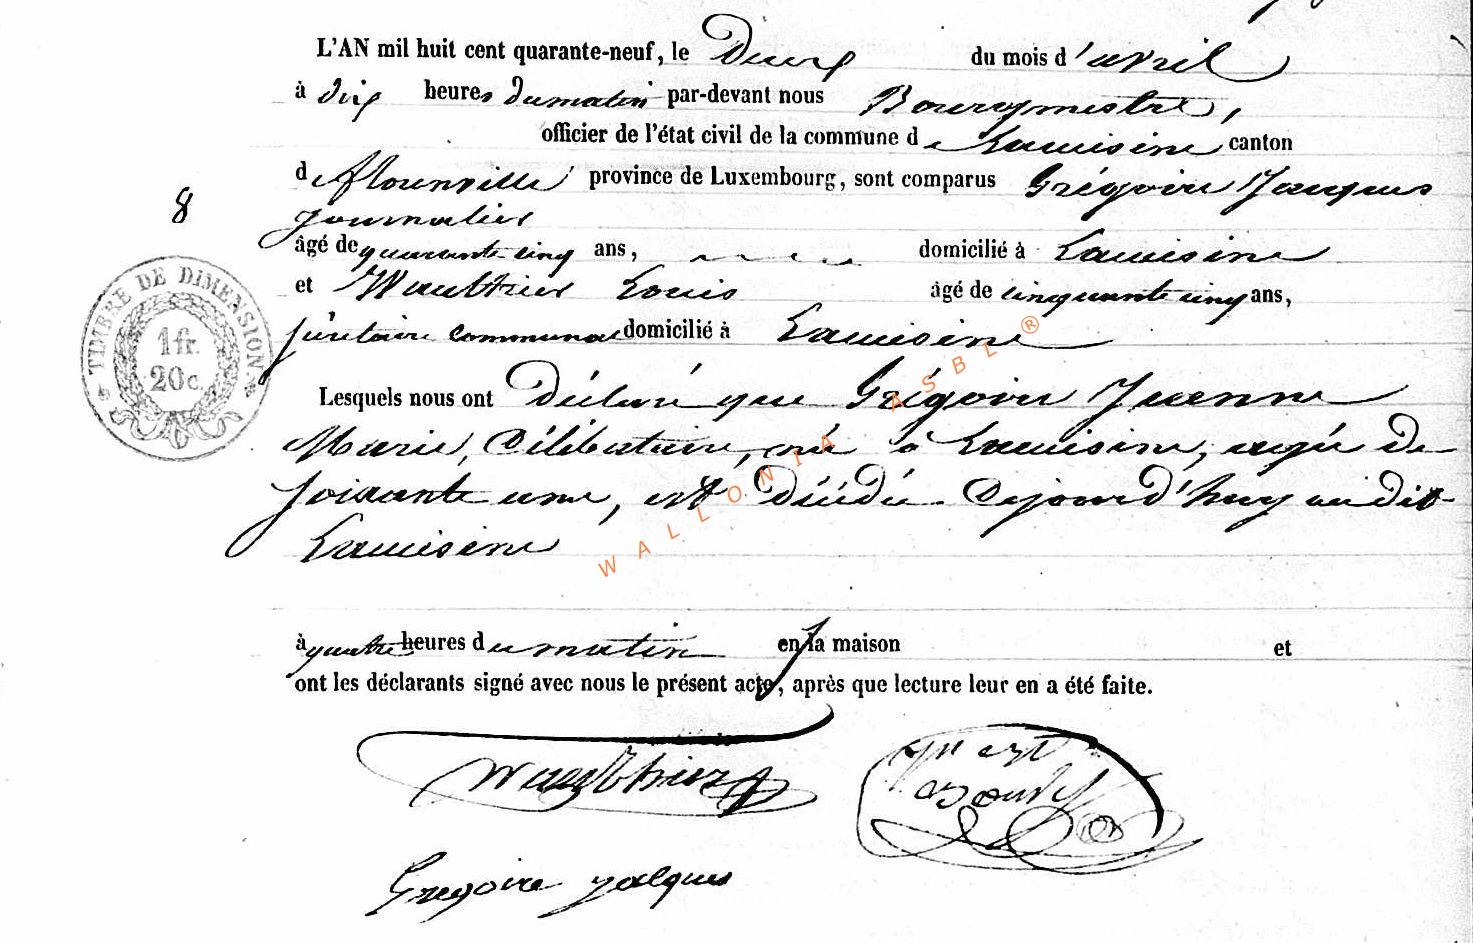 L'AN mil huit cent quarante-neuf, le Deux du mois d'avril
à dix heures du matin par-devant nous Bourgmestre,
officier de l'état civil de la commune de Lacuisine canton
de florenville province de Luxembourg, sont comparus Grégoire Jacques
journalier
âgé de quarante cinq ans, domicilié à Lacuisine
et Wauthier Louis âgé de cinquante cinq ans,
secrétaire communal domicilié à Lacuisine
Lesquels nous ont Déclaré que Grégoire Jeanne
Marie, Célibataire, née à Lacuisine, agée de
soixante une, est Décédée aujourd'huy au dit
Lacuisine
à quatre heures du matin en la maison et
ont les déclarants signé avec nous le présent acte, après que lecture leur en a été faite.
Wauthier
Gregoire Jacques
8
TIMBRE DE DIMENSION
1 fr.
20 c.
WALLONIA ASBL ®